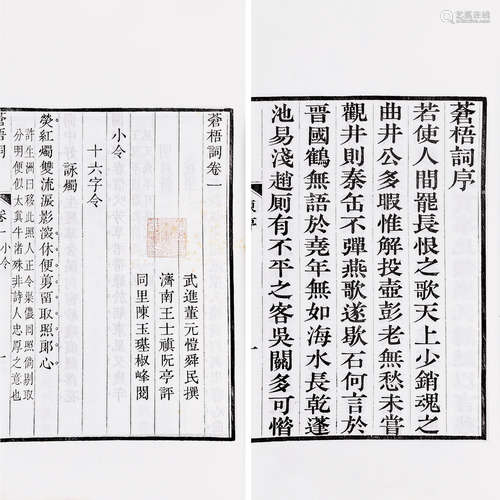 蒼梧詞序
若使人間罷長恨之歌天上少銷魂之
曲井公多暇惟解投壺彭老無愁未嘗
觀井則秦缶不彈燕歌遂歇石何言於
晉國鶴無語於堯年無如海水長乾蓬
池易淺趙厠有不平之客吳關多可憯
序
一
蒼梧詞卷一
武進董元愷舜民撰
濟南王士禛阮亭評
同里陳玉璂椒峰閱
小令
十六字令
詠燭
熒紅燭雙流淚影深休便剪留取照郎心
許生洲曰移此照人正令同照倘剔取
分明便似太真牛渚殊非詩人忠厚之意也
蒼梧詞
卷一
小令
一